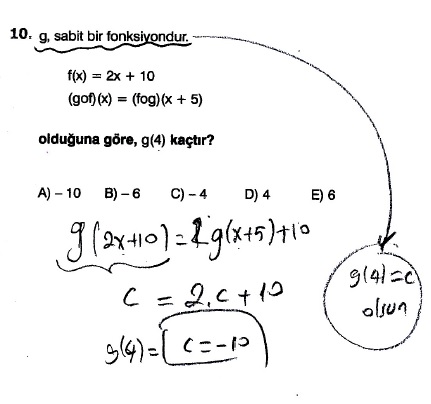 10. g, sabit bir fonksiyondur.
f(x) = 2x + 10
(gof)(x) = (fog)(x + 5)
olduğuna göre, g(4) kaçtır?
A) – 10 B) – 6 C) – 4 D) 4 E) 6
g(2x+10) = 2g(x+5)+10
g(4)=c
olsun
c = 2.c + 10
g(4) = c = -10